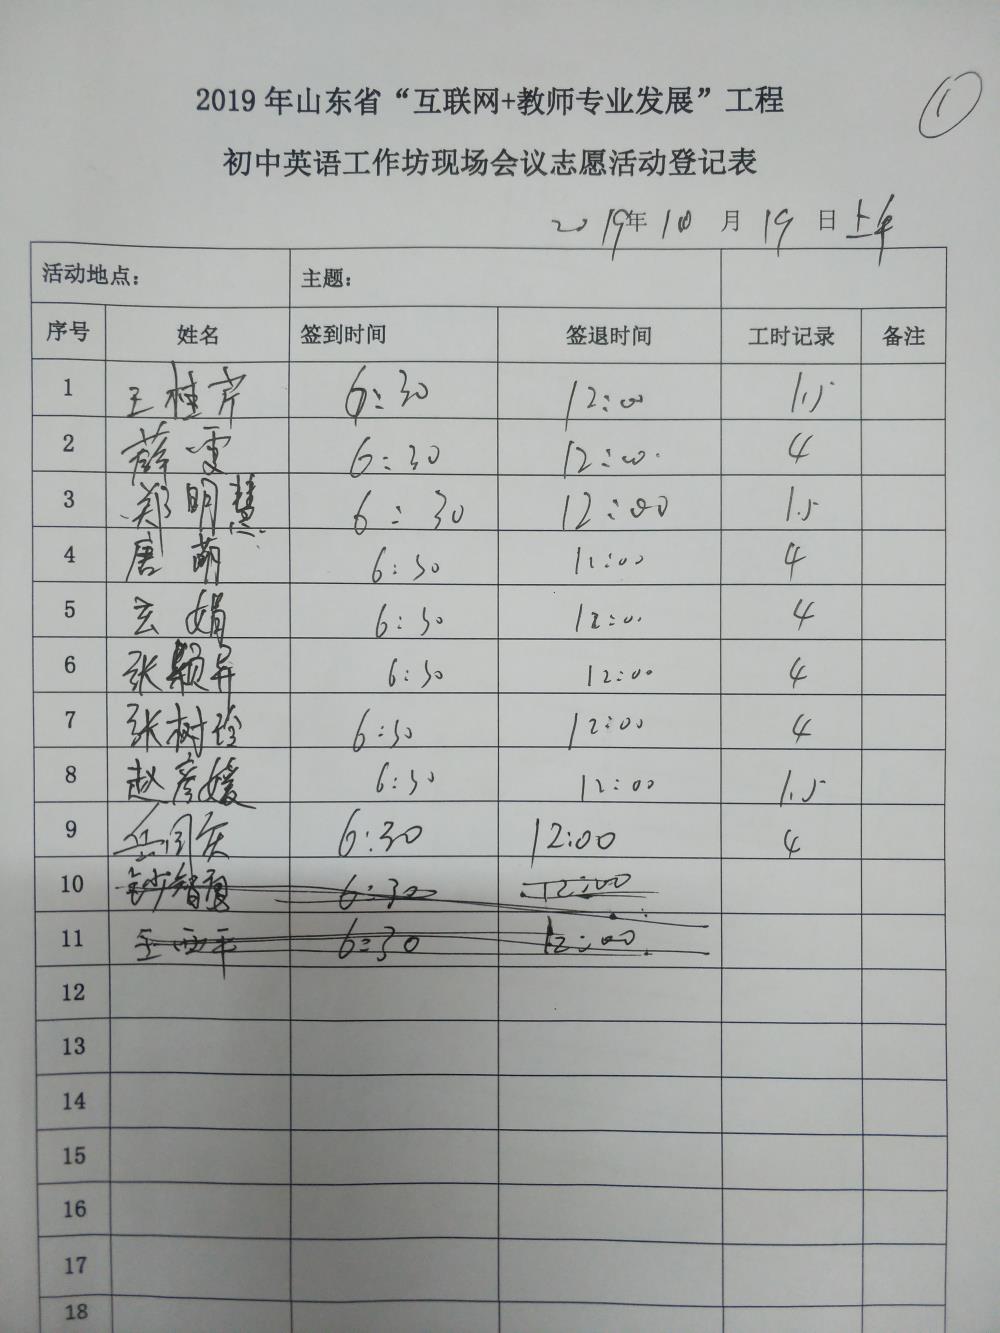 ①
2019 年山东省“互联网+教师专业发展”工程
初中英语工作坊现场会议志愿活动登记表
2019年 10 月 19 日 上午
活动地点: 主题:
序号 姓名 签到时间 签退时间 工时记录 备注
1 王桂芹 6:30 12:00 1.5
2 薛雯 6:30 12:00 4
3 郑明慧 6:30 12:00 1.5
4 唐萌 6:30 12:00 4
5 玄娟 6:30 12:00 4
6 张颖异 6:30 12:00 4
7 张树玲 6:30 12:00 4
8 赵彦媛 6:30 12:00 1.5
9 6:30 12:00 4
10 6:30 12:00
11 王西平 6:30 12:00
12
13
14
15
16
17
18